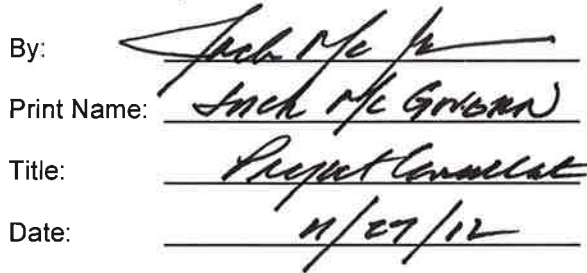 By: Jack Mc
Print Name: Jack Mc Govern
Title: Project Consultant
Date: 11/27/12